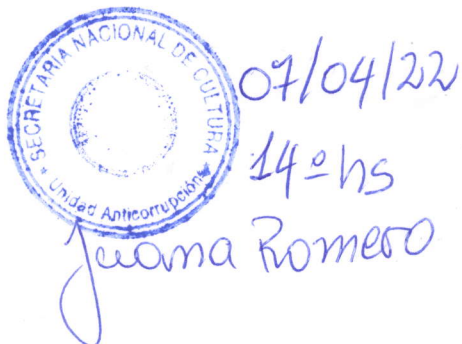 SECRETARIA NACIONAL DE CULTURA
Unidad Anticorrupción
07/04/22
14º hs
Juana Romero